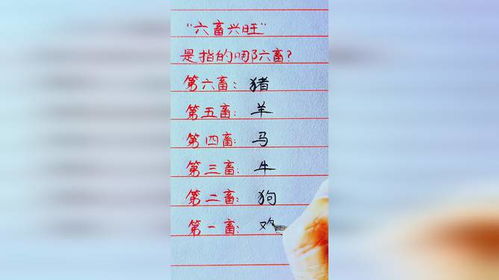 “六畜兴旺”
是指的哪六畜?
第六畜: 猪
第五畜: 羊
第四畜: 马
第三畜: 牛
第二畜: 狗
第一畜: 鸡